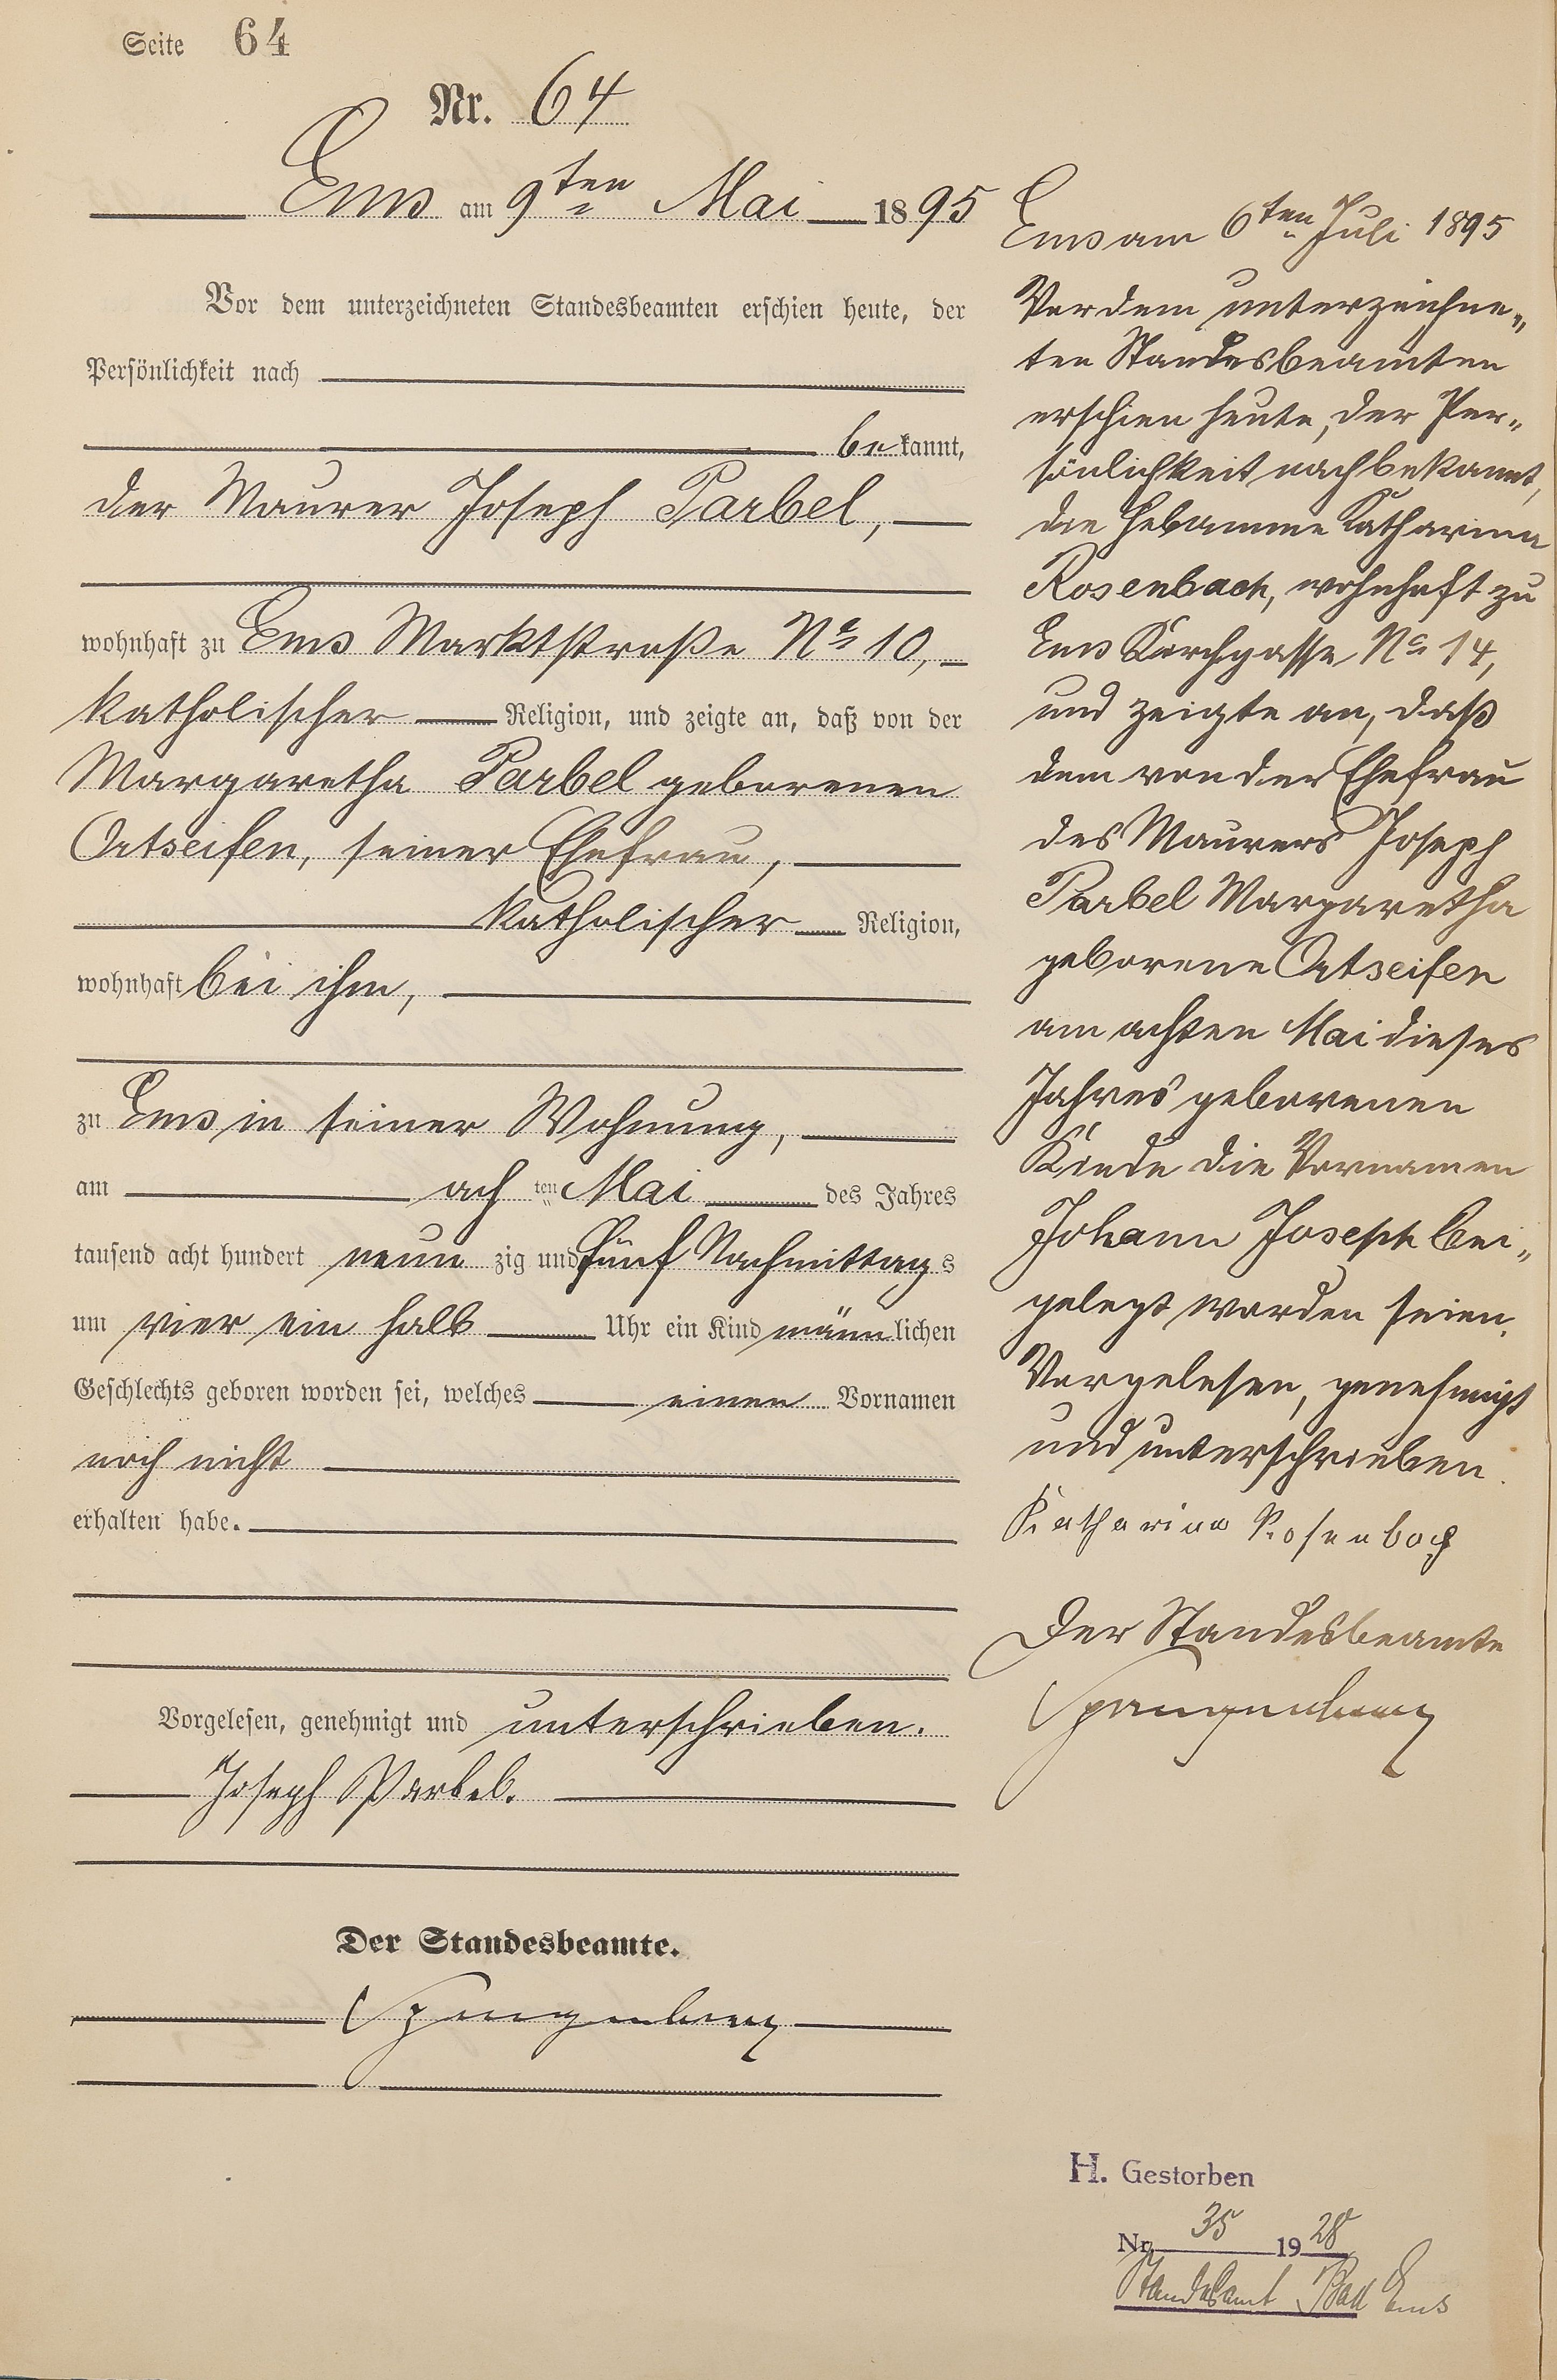 Seite 64
Nr. 64
Ems am 9ten Mai 1895
Vor dem unterzeichneten Standesbeamten erschien heute, der
Persönlichkeit nach
bekannt,
der Maurer Joseph Parbel,
wohnhaft zu Ems Marktstraße No 10,
katholischer Religion, und zeigte an, daß von der
Margaretha Parbel geborenen
Ortseifen, seiner Ehefrau,
katholischer Religion,
wohnhaft bei ihm,
zu Ems in seiner Wohnung,
am achten Mai des Jahres
tausend acht hundert neunzig und fünf Nachmittags
um vier ein halb Uhr ein Kind männlichen
Geschlechts geboren worden sei, welches einen Vornamen
noch nicht
erhalten habe.
Vorgelesen, genehmigt und unterschrieben.
Joseph Parbel.
Der Standesbeamte.
Spangenberg
Ems am 6ten Juli 1895
Vor dem unterzeichne-
ten Standesbeamten
erschien heute, der Per-
sönlichkeit nach bekannt,
die Hebamme Katharina
Rosenbach, wohnhaft zu
Ems Kirchgasse No 14,
und zeigte an, daß
dem von der Ehefrau
des Maurers Joseph
Parbel Margaretha
geborene Ortseifen
am achten Mai dieses
Jahres geborenen
Kinde die Vornamen
Johann Joseph bei-
gelegt worden seien.
Vorgelesen, genehmigt
und unterschrieben.
Katharina Rosenbach
Der Standesbeamte
Spangenberg
H. Gestorben
Nr. 35 1928
Standesamt Bad Ems